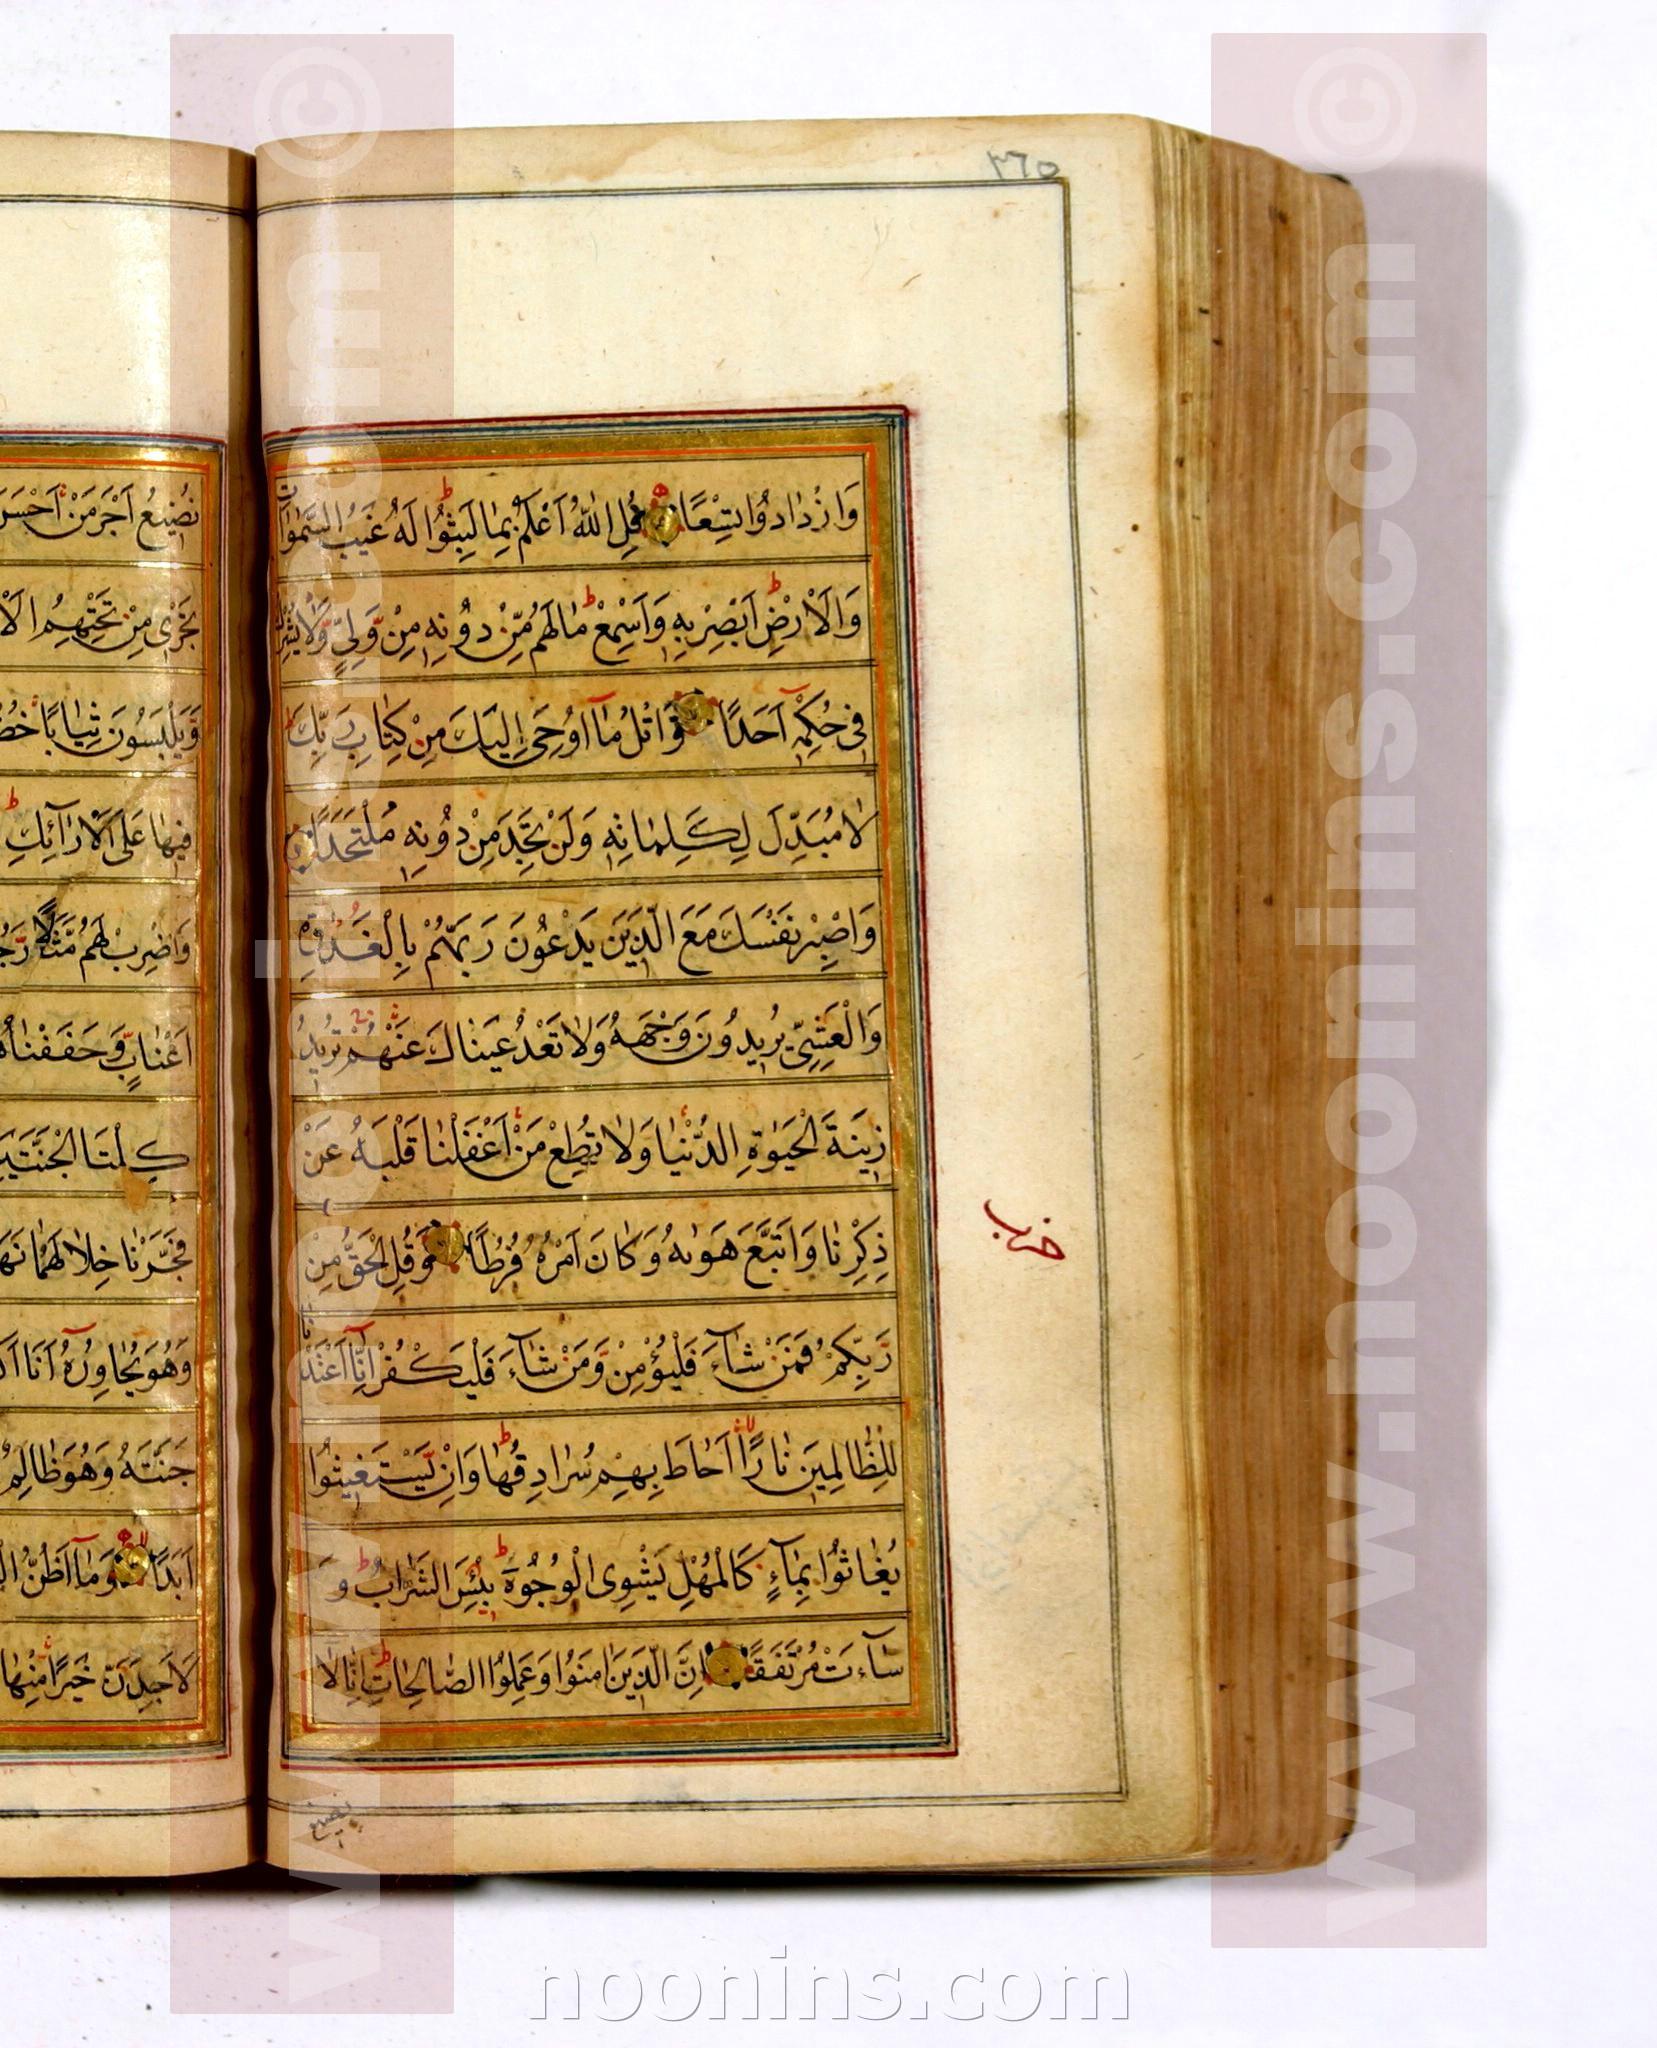 ٣٦٥
وَازْدَادُوا تِسْعًا قُلِ اللهُ أَعْلَمُ بِمَا لَبِثُوا لَهُ غَيْبُ السَّمٰوَاتِ
وَالْاَرْضِ اَبْصِرْ بِهِ وَاَسْمِعْ مَا لَهُمْ مِنْ دُونِهِ مِنْ وَلِيٍّ وَلَا يُشْرِكُ
فِي حُكْمِهِ اَحَدًا وَاتْلُ مَا اُوحِيَ اِلَيْكَ مِنْ كِتَابِ رَبِّكَ
لَا مُبَدِّلَ لِكَلِمَاتِهِ وَلَنْ تَجِدَ مِنْ دُونِهِ مُلْتَحَدًا
وَاصْبِرْ نَفْسَكَ مَعَ الَّذِينَ يَدْعُونَ رَبَّهُمْ بِالْغَدٰوةِ
وَالْعَشِيِّ يُرِيدُونَ وَجْهَهُ وَلَا تَعْدُ عَيْنَاكَ عَنْهُمْ تُرِيدُ
زِينَةَ الْحَيٰوةِ الدُّنْيَا وَلَا تُطِعْ مَنْ اَغْفَلْنَا قَلْبَهُ عَنْ
ذِكْرِنَا وَاتَّبَعَ هَوٰيهُ وَكَانَ اَمْرُهُ فُرُطًا وَقُلِ الْحَقُّ مِنْ
رَبِّكُمْ فَمَنْ شَاءَ فَلْيُؤْمِنْ وَمَنْ شَاءَ فَلْيَكْفُرْ اِنَّا اَعْتَدْنَا
لِلظَّالِمِينَ نَارًا اَحَاطَ بِهِمْ سُرَادِقُهَا وَاِنْ يَسْتَغِيثُوا
يُغَاثُوا بِمَاءٍ كَالْمُهْلِ يَشْوِى الْوُجُوهَ بِئْسَ الشَّرَابُ وَ
سَاءَتْ مُرْتَفَقًا اِنَّ الَّذِينَ اٰمَنُوا وَعَمِلُوا الصَّالِحَاتِ اِنَّا لَا
حزب
نضيع
نُضِيعُ اَجْرَ مَنْ اَحْسَنَ
تَجْرِى مِنْ تَحْتِهِمُ الْاَ
وَيَلْبَسُونَ ثِيَابًا خُضْ
فِيهَا عَلَى الْاَرَائِكِ
وَاضْرِبْ لَهُمْ مَثَلًا رَجُ
اَعْنَابٍ وَحَفَفْنَاهُ
كِلْتَا الْجَنَّتَيْ
فَجَّرْنَا خِلَالَهُمَا نَهَ
وَهُوَ يُحَاوِرُهُ اَنَا اَكْ
جَنَّتَهُ وَهُوَ ظَالِمٌ
اَبَدًا وَمَا اَظُنُّ ال
لَاَجِدَنَّ خَيْرًا مِنْهَا
www.noonins.com ©
www.noonins.com ©
noonins.com